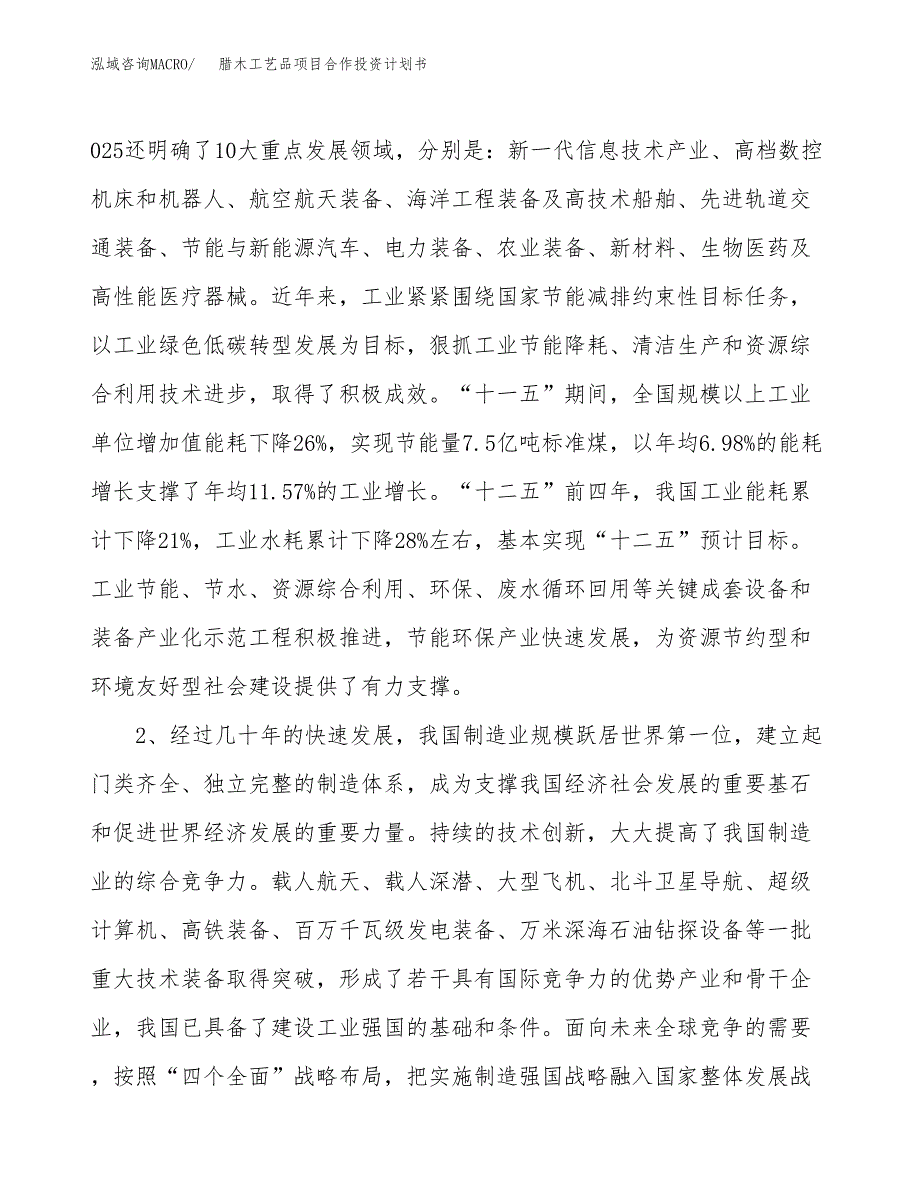 泓域咨询MACRO/ 腊木工艺品项目合作投资计划书
025还明确了10大重点发展领域，分别是：新一代信息技术产业、高档数控
机床和机器人、航空航天装备、海洋工程装备及高技术船舶、先进轨道交
通装备、节能与新能源汽车、电力装备、农业装备、新材料、生物医药及
高性能医疗器械。近年来，工业紧紧围绕国家节能减排约束性目标任务，
以工业绿色低碳转型发展为目标，狠抓工业节能降耗、清洁生产和资源综
合利用技术进步，取得了积极成效。“十一五”期间，全国规模以上工业
单位增加值能耗下降26%，实现节能量7.5亿吨标准煤，以年均6.98%的能耗
增长支撑了年均11.57%的工业增长。“十二五”前四年，我国工业能耗累
计下降21%，工业水耗累计下降28%左右，基本实现“十二五”预计目标。
工业节能、节水、资源综合利用、环保、废水循环回用等关键成套设备和
装备产业化示范工程积极推进，节能环保产业快速发展，为资源节约型和
环境友好型社会建设提供了有力支撑。
2、经过几十年的快速发展，我国制造业规模跃居世界第一位，建立起
门类齐全、独立完整的制造体系，成为支撑我国经济社会发展的重要基石
和促进世界经济发展的重要力量。持续的技术创新，大大提高了我国制造
业的综合竞争力。载人航天、载人深潜、大型飞机、北斗卫星导航、超级
计算机、高铁装备、百万千瓦级发电装备、万米深海石油钻探设备等一批
重大技术装备取得突破，形成了若干具有国际竞争力的优势产业和骨干企
业，我国已具备了建设工业强国的基础和条件。面向未来全球竞争的需要
，按照“四个全面”战略布局，把实施制造强国战略融入国家整体发展战